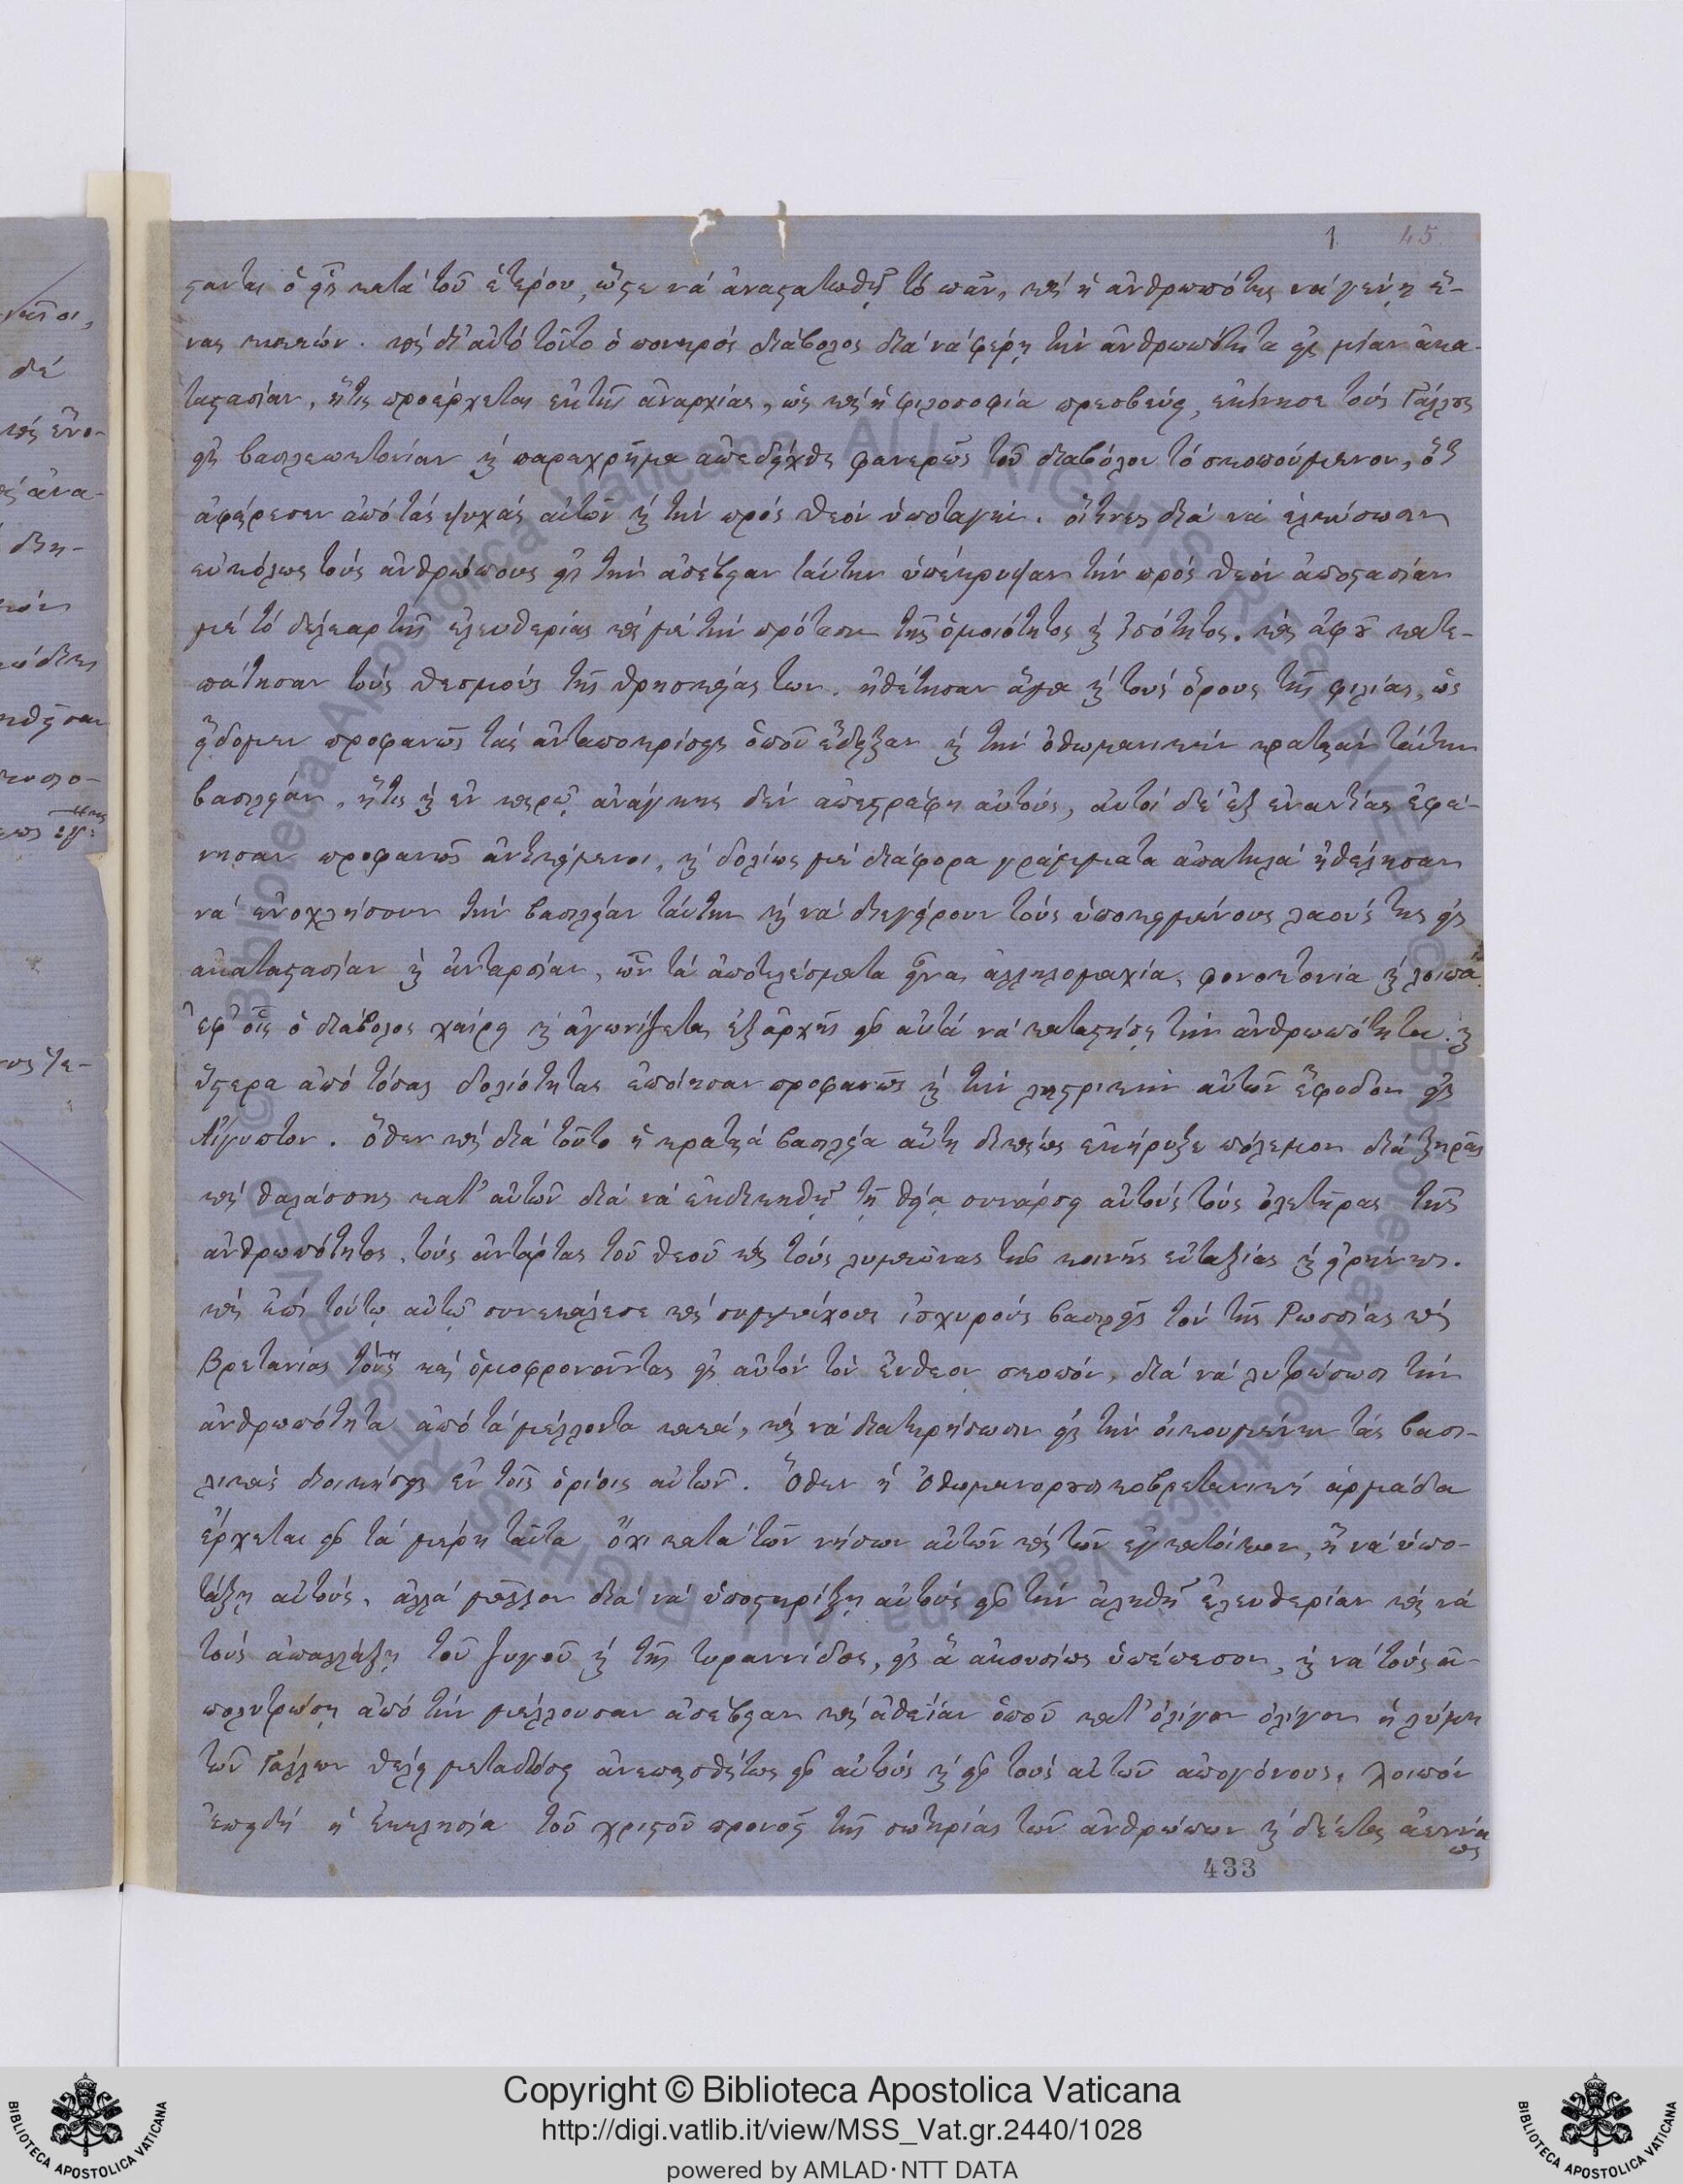 1 45
στανται ὁ εἷς κατὰ τοῦ ἑτέρου, ὥστε νὰ ἀναστατωθῇ τὸ πᾶν, καὶ ἡ ἀνθρωπότης νὰ γένῃ ἕ-
νας κυκεών. καὶ δι' αὐτὸ τοῦτο ὁ πονηρὸς διάβολος διὰ νὰ φέρῃ τὴν ἀνθρωπότητα εἰς μίαν ἀκα-
ταστασίαν, ἥτις προέρχεται ἐκ τῆς ἀναρχίας, ὡς καὶ ἡ φιλοσοφία πρεσβεύει, ἐκίνησε τοὺς Γάλλους
εἰς βασιλεωκτονίαν καὶ παραχρῆμα ἀπεδείχθη φανερῶς τοῦ διαβόλου τὸ σκοπούμενον, ὅτι
ἀφῄρεσεν ἀπὸ τὰς ψυχὰς αὐτῶν καὶ τὴν πρὸς θεὸν ὑποταγήν. οἵτινες διὰ νὰ ἑλκύσωσιν
εὐκόλως τοὺς ἀνθρώπους εἰς τὴν ἀσέβειαν ταύτην ὑπέκρυψαν τὴν πρὸς θεὸν ἀποστασίαν
μὲ τὸ δέλεαρ τῆς ἐλευθερίας καὶ μὲ τὴν πρότασιν τῆς ὁμοιότητος καὶ ἰσότητος. καὶ ἀφ' οὗ κατε-
πάτησαν τοὺς θεσμοὺς τῆς θρησκείας των. ἠθέτησαν ἅμα καὶ τοὺς ὅρους τῆς φιλίας, ὡς
εἴδομεν προφανῶς τὰς ἀνταποκρίσεις ὁποῦ ἔδειξαν εἰς τὴν ὀθωμανικὴν κραταιὰν ταύτην
βασιλείαν, ἥτις καὶ ἐν καιρῷ ἀνάγκης δὲν ἀπεστράφη αὐτούς, αὐτοὶ δὲ ἐξ ἐναντίας ἐφά-
νησαν προφανῶς ἀντικείμενοι, καὶ δολίως μὲ διάφορα γράμματα ἀπατηλὰ ἠθέλησαν
νὰ ἐνοχλήσουν τὴν βασιλείαν ταύτην καὶ νὰ διεγείρουν τοὺς ὑποκειμένους λαούς της εἰς
ἀκαταστασίαν καὶ ἀνταρσίαν, ὧν τὰ ἀποτελέσματα εἶναι ἀλληλομαχία, φονοκτονία καὶ λοιπά.
ἐφ' οἷς ὁ διάβολος χαίρει καὶ ἀγωνίζεται ἐξ ἀρχῆς εἰς αὐτὰ νὰ καταστήσῃ τὴν ἀνθρωπότητα. καὶ
ὕστερα ἀπὸ τόσας δολιότητας ἐποίησαν προφανῶς καὶ τὴν λῃστρικὴν αὐτῶν ἔφοδον εἰς
Αἴγυπτον. ὅθεν καὶ διὰ τοῦτο ἡ κραταιὰ βασιλεία αὕτη δικαίως ἐκήρυξε πόλεμον διὰ ξηρᾶς
καὶ θαλάσσης κατ' αὐτῶν διὰ νὰ ἐκδικηθῇ τῇ θείᾳ συνάρσει αὐτοὺς τοὺς ὀλετῆρας τῆς
ἀνθρωπότητος, τοὺς ἀντάρτας τοῦ θεοῦ καὶ τοὺς λυμεῶνας τῆς κοινῆς εὐταξίας καὶ εἰρήνης.
καὶ ἐπὶ τούτῳ αὐτῷ συνεκάλεσε καὶ συμμάχους ἰσχυροὺς βασιλεῖς τὸν τῆς Ρωσσίας καὶ
Βρετανίας τοὺς καὶ ὁμοφρονοῦντας εἰς αὐτὸν τὸν ἔνθεον σκοπόν, διὰ νὰ λυτρώσωσι τὴν
ἀνθρωπότητα ἀπὸ τὰ μέλλοντα κακά, καὶ νὰ διατηρήσωσιν εἰς τὴν οἰκουμένην τὰς βασι-
λικὰς διοικήσεις ἐν τοῖς ὁρίοις αὐτῶν. Ὅθεν ἡ ὀθωμανορωσσοβρετανικὴ ἁρμάδα
ἔρχεται εἰς τὰ μέρη ταῦτα ὄχι κατὰ τῶν νήσων αὐτῶν καὶ τῶν ἐγκατοίκων, ἢ νὰ ὑπο-
τάξῃ αὐτούς, ἀλλὰ μᾶλλον διὰ νὰ ὑποστηρίξῃ αὐτοὺς εἰς τὴν ἀληθῆ ἐλευθερίαν καὶ νὰ
τοὺς ἀπαλλάξῃ τοῦ ζυγοῦ καὶ τῆς τυραννίδος, εἰς ἃ ἀκουσίως ὑπέπεσον, καὶ νὰ τοὺς ἀ-
πολυτρώσῃ ἀπὸ τὴν μέλλουσαν ἀσέβειαν καὶ ἀθεΐαν ὁποῦ κατ' ὀλίγον ὀλίγον ἡ λύμη
τῶν Γάλλων θέλει μεταδώσει ἀνεπαισθήτως εἰς αὐτοὺς καὶ εἰς τοὺς αὐτῶν ἀπογόνους. λοιπὸν
ἐπειδὴ ἡ ἐκκλησία τοῦ χριστοῦ προνοεῖ τῆς σωτηρίας τῶν ἀνθρώπων καὶ δέεται ἀεννά
ως
433
Copyright © Biblioteca Apostolica Vaticana
http://digi.vatlib.it/view/MSS_Vat.gr.2440/1028
powered by AMLAD·NTT DATA